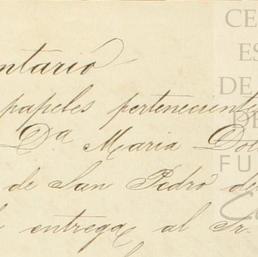 ntario
papeles pertenecientes
Dª Maria Dol
de San Pedro de
entrega al Sr.
CE
ES
DE
DE
FU